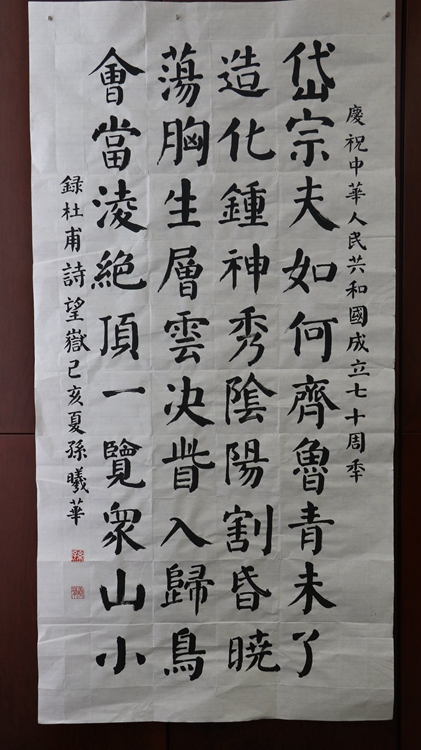 慶祝中華人民共和國成立七十周秊
岱宗夫如何齊魯青未了
造化鍾神秀隂陽割昏曉
蕩胸生層雲决眥入歸鳥
會當淩絶頂一覽衆山小
録杜甫詩望嶽己亥夏孫曦華